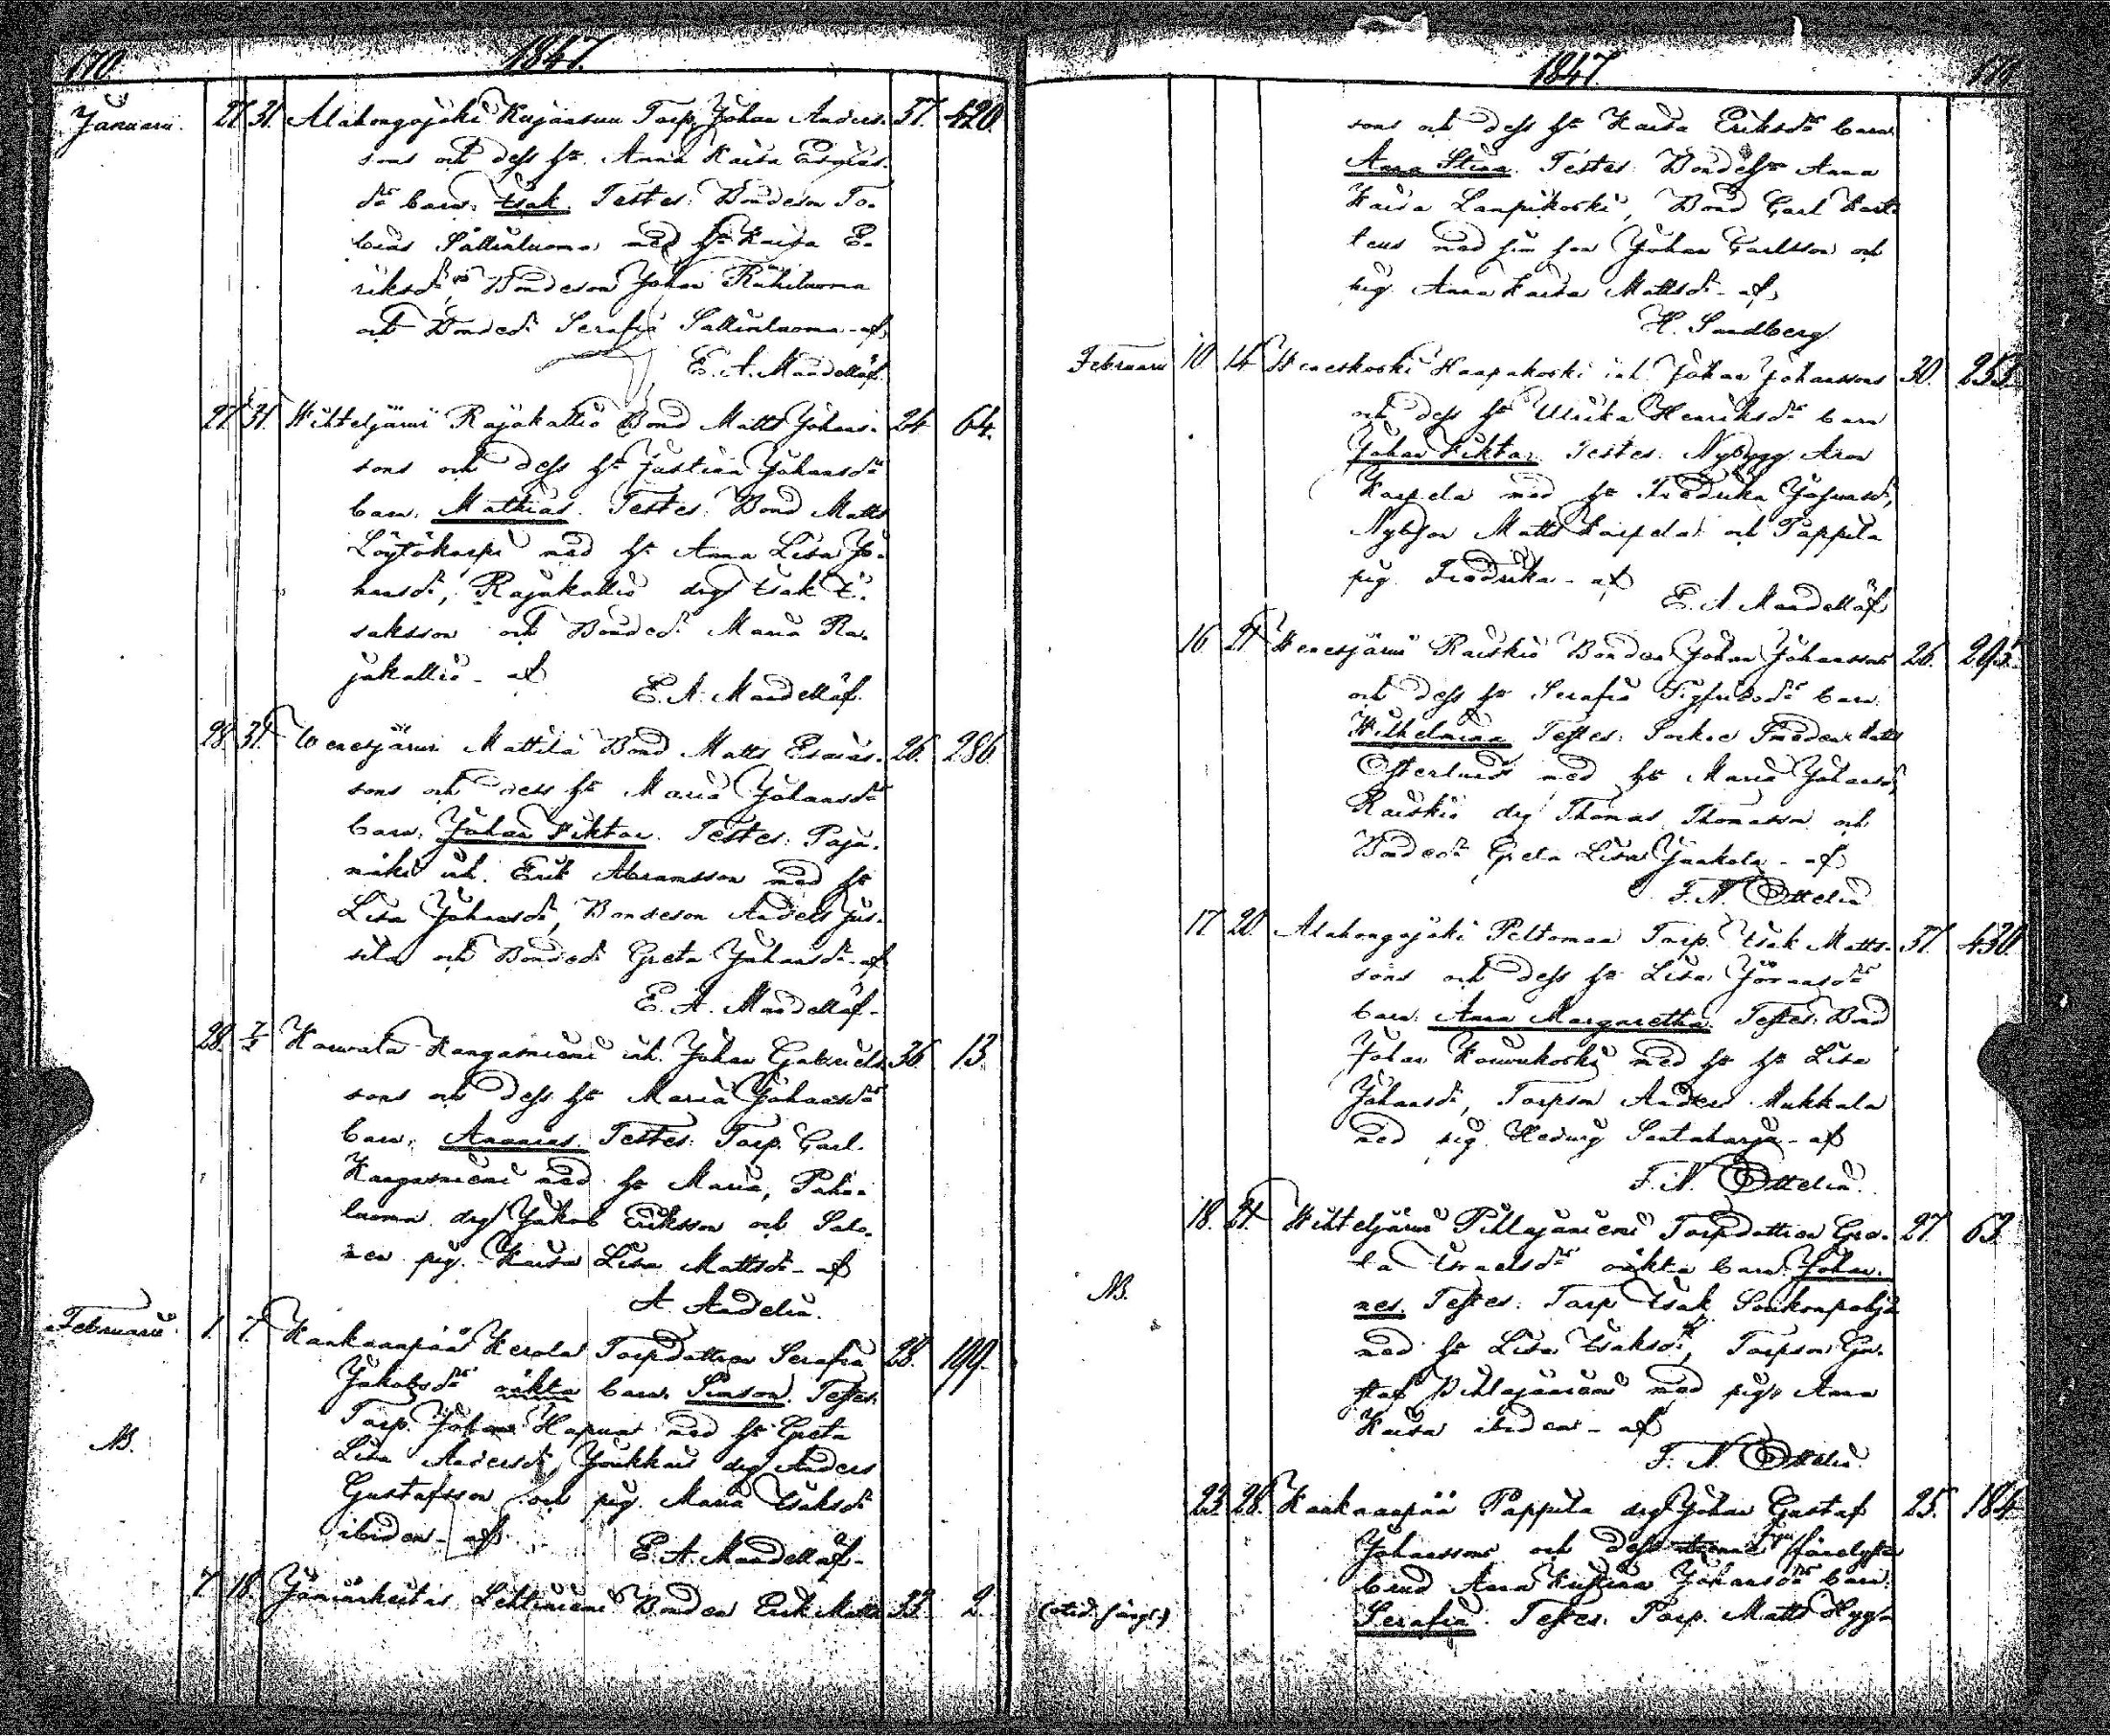 170
1847.
Januarii. 27. 31. Alahongojoki Kujansuu Torp. Johan Anders- 37. 420.
sons och dess hu Anna Kaisa Esaias-
dr barn: Isak. Testes: Bondeson To-
bias Sällinluoma med hu Kaisa E-
riksdr, Bondeson Johan Riihiluoma
och Bonded. Serafia Sällinluoma - af
E. A. Mandellöf.
27. 31. Wihteljärvi Rajakallio Bond Matts Johans- 24 64.
sons och dess hu Justina Johansdr
barn: Mathias. Testes: Bond Matts
Löytökorpi med hu Anna Lisa Jo-
hansdr, Rajakallio drg Isak I-
saksson och Bonded. Maria Ra-
jakallio - af
E. A. Mandellöf.
28. 31. Wenesjärvi Mattila Bond Matts Esaias- 26. 286.
sons och dess hu Maria Johansdr
barn: Johan Viktor. Testes: Paja-
mäki inh. Erik Abramsson med hu
Lisa Johansdr, Bondeson Anders Jus-
sila och Bonded. Greta Johansdr - af
E. A. Mandellöf.
28. 7/2 Karvala Kangasniemi inh. Johan Gabriels- 36. 13.
sons och dess hu Maria Johansdr
barn: Ananias. Testes: Torp. Carl
Kangasniemi med hu Maria, Paha-
luoma drg Jakob Eriksson och Salo-
nen pig. Kaisa Lisa Mattsdr - af
A. Andelin.
Februarii. 1. 7. Kankaanpää Kerola Torpdottren Serafia 28. 199.
Jakobsdr oäkta barn Simson. Testes:
Torp. Johan Hapua med hu Greta
NB.
Lisa Andersdr, Jonkkari drg Anders
Gustafsson och pig. Maria Isaksdr
ibidem - af
E. A. Mandellöf.
7. 18. Jämiänkeitas Lehtiniemi Bonden Erik Matts- 33. 2.
1847. 171
sons och dess hu Kaisa Eriksdr barn
Anna Stina. Testes: Bondehu Anna
Kaisa Lampikoski, Bond Carl
med sin son Johan Carlsson och
pig. Anna Kaisa Mattsdr - af
H. Sandberg
Februarii 10 14 Weneskoski Haapakoski inh. Johan Johanssons 30. 253.
och dess hu Ulrika Henriksdr barn
Johan Viktor. Testes: Nybygg. Aron
Karpela med hu Fredrika Johansdr,
Nybson Matts Karpela och Pappila
pig. Fredrika - af
E. A. Mandellöf
16 21 Wenesjärvi Raiskio Bonden Johan Johanssons 26. 292.
och dess hu Serafia Sigfridsdr barn:
Wilhelmina. Testes: Sockne Smeden Matts
Österlund med hu Maria Johansdr,
Raiskio drg Thomas Thomasson och
Bonded. Greta Lisa Jaakola - af
F. N. Ottelin
17. 20. Alahongojoki Peltomaa Torp. Isak Matts- 37. 430.
sons och dess hu Lisa Jöransdr
barn: Anna Margaretha. Testes: Bond
Johan Kouvukoski med hu hu Lisa
Johansdr, Torpson Anders Mukkala
med pig. Hedvig Santaharju - af
F. N. Ottelin.
18. 21. Wihteljärvi Pihlajaniemi Torpdottren Gre- 27. 63.
ta Israelsdr oäkta barn Johan-
NB.
nes. Testes: Torp Isak Soukonpohja
med hu Lisa Isaksdr, Torpson Gu-
staf Pihlajaniemi med pig. Anna
Kaisa ibidem - af
F. N. Ottelin.
23. 28. Kankaanpää Pappila drg Johan Gustaf 25. 184.
Johanssons och dess förelofvade
brud Anna Kristina Johansdr barn:
Serafia. Testes: Torp. Matts